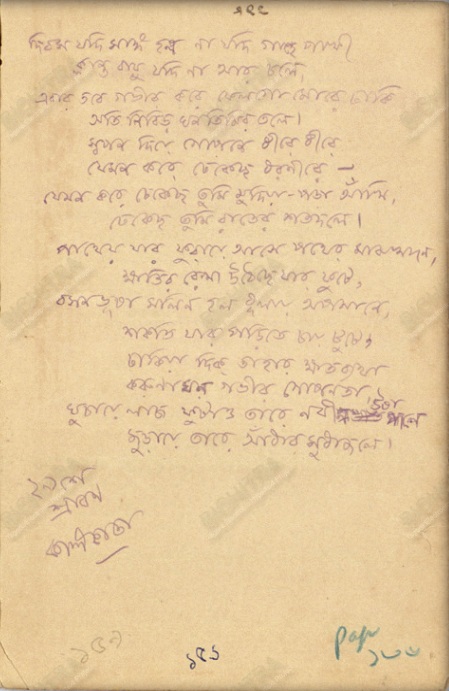 দিবস যদি সাঙ্গ হল না যদি গাহে পাখী
ক্লান্ত বায়ু যদি না আর চলে,
এবার তবে গভীর করে ফেলগো মোরে ঢাকি
অতি নিবিড় ঘন তিমির তলে।
স্বপন দিয়ে গোপনে ধীরে ধীরে
যেমন করে ঢেকেছ ধরণীরে —
যেমন করে ঢেকেছ তুমি মুদিয়া-পড়া আঁখি,
ঢেকেছ তুমি রাতের শতদলে।
পাথেয় যার ফুরায়ে আসে পথের মাঝখানে,
ক্ষতির রেখা উঠেছে যার ফুটে,
বসনভূষা মলিন হল ধূলায় অপমানে,
শকতি যার পড়িতে চায় টুটে,
ঢাকিয়া দিক্ তাহার ক্ষতব্যথা
করুণাঘন গভীর গোপনতা,
ঘুচায়ে লাজ ফুটাও তারে নবীন উষা পানে
জুড়ায়ে তারে আঁধার সুধাজলে।
২৯শে
শ্রাবণ
কলিকাতা